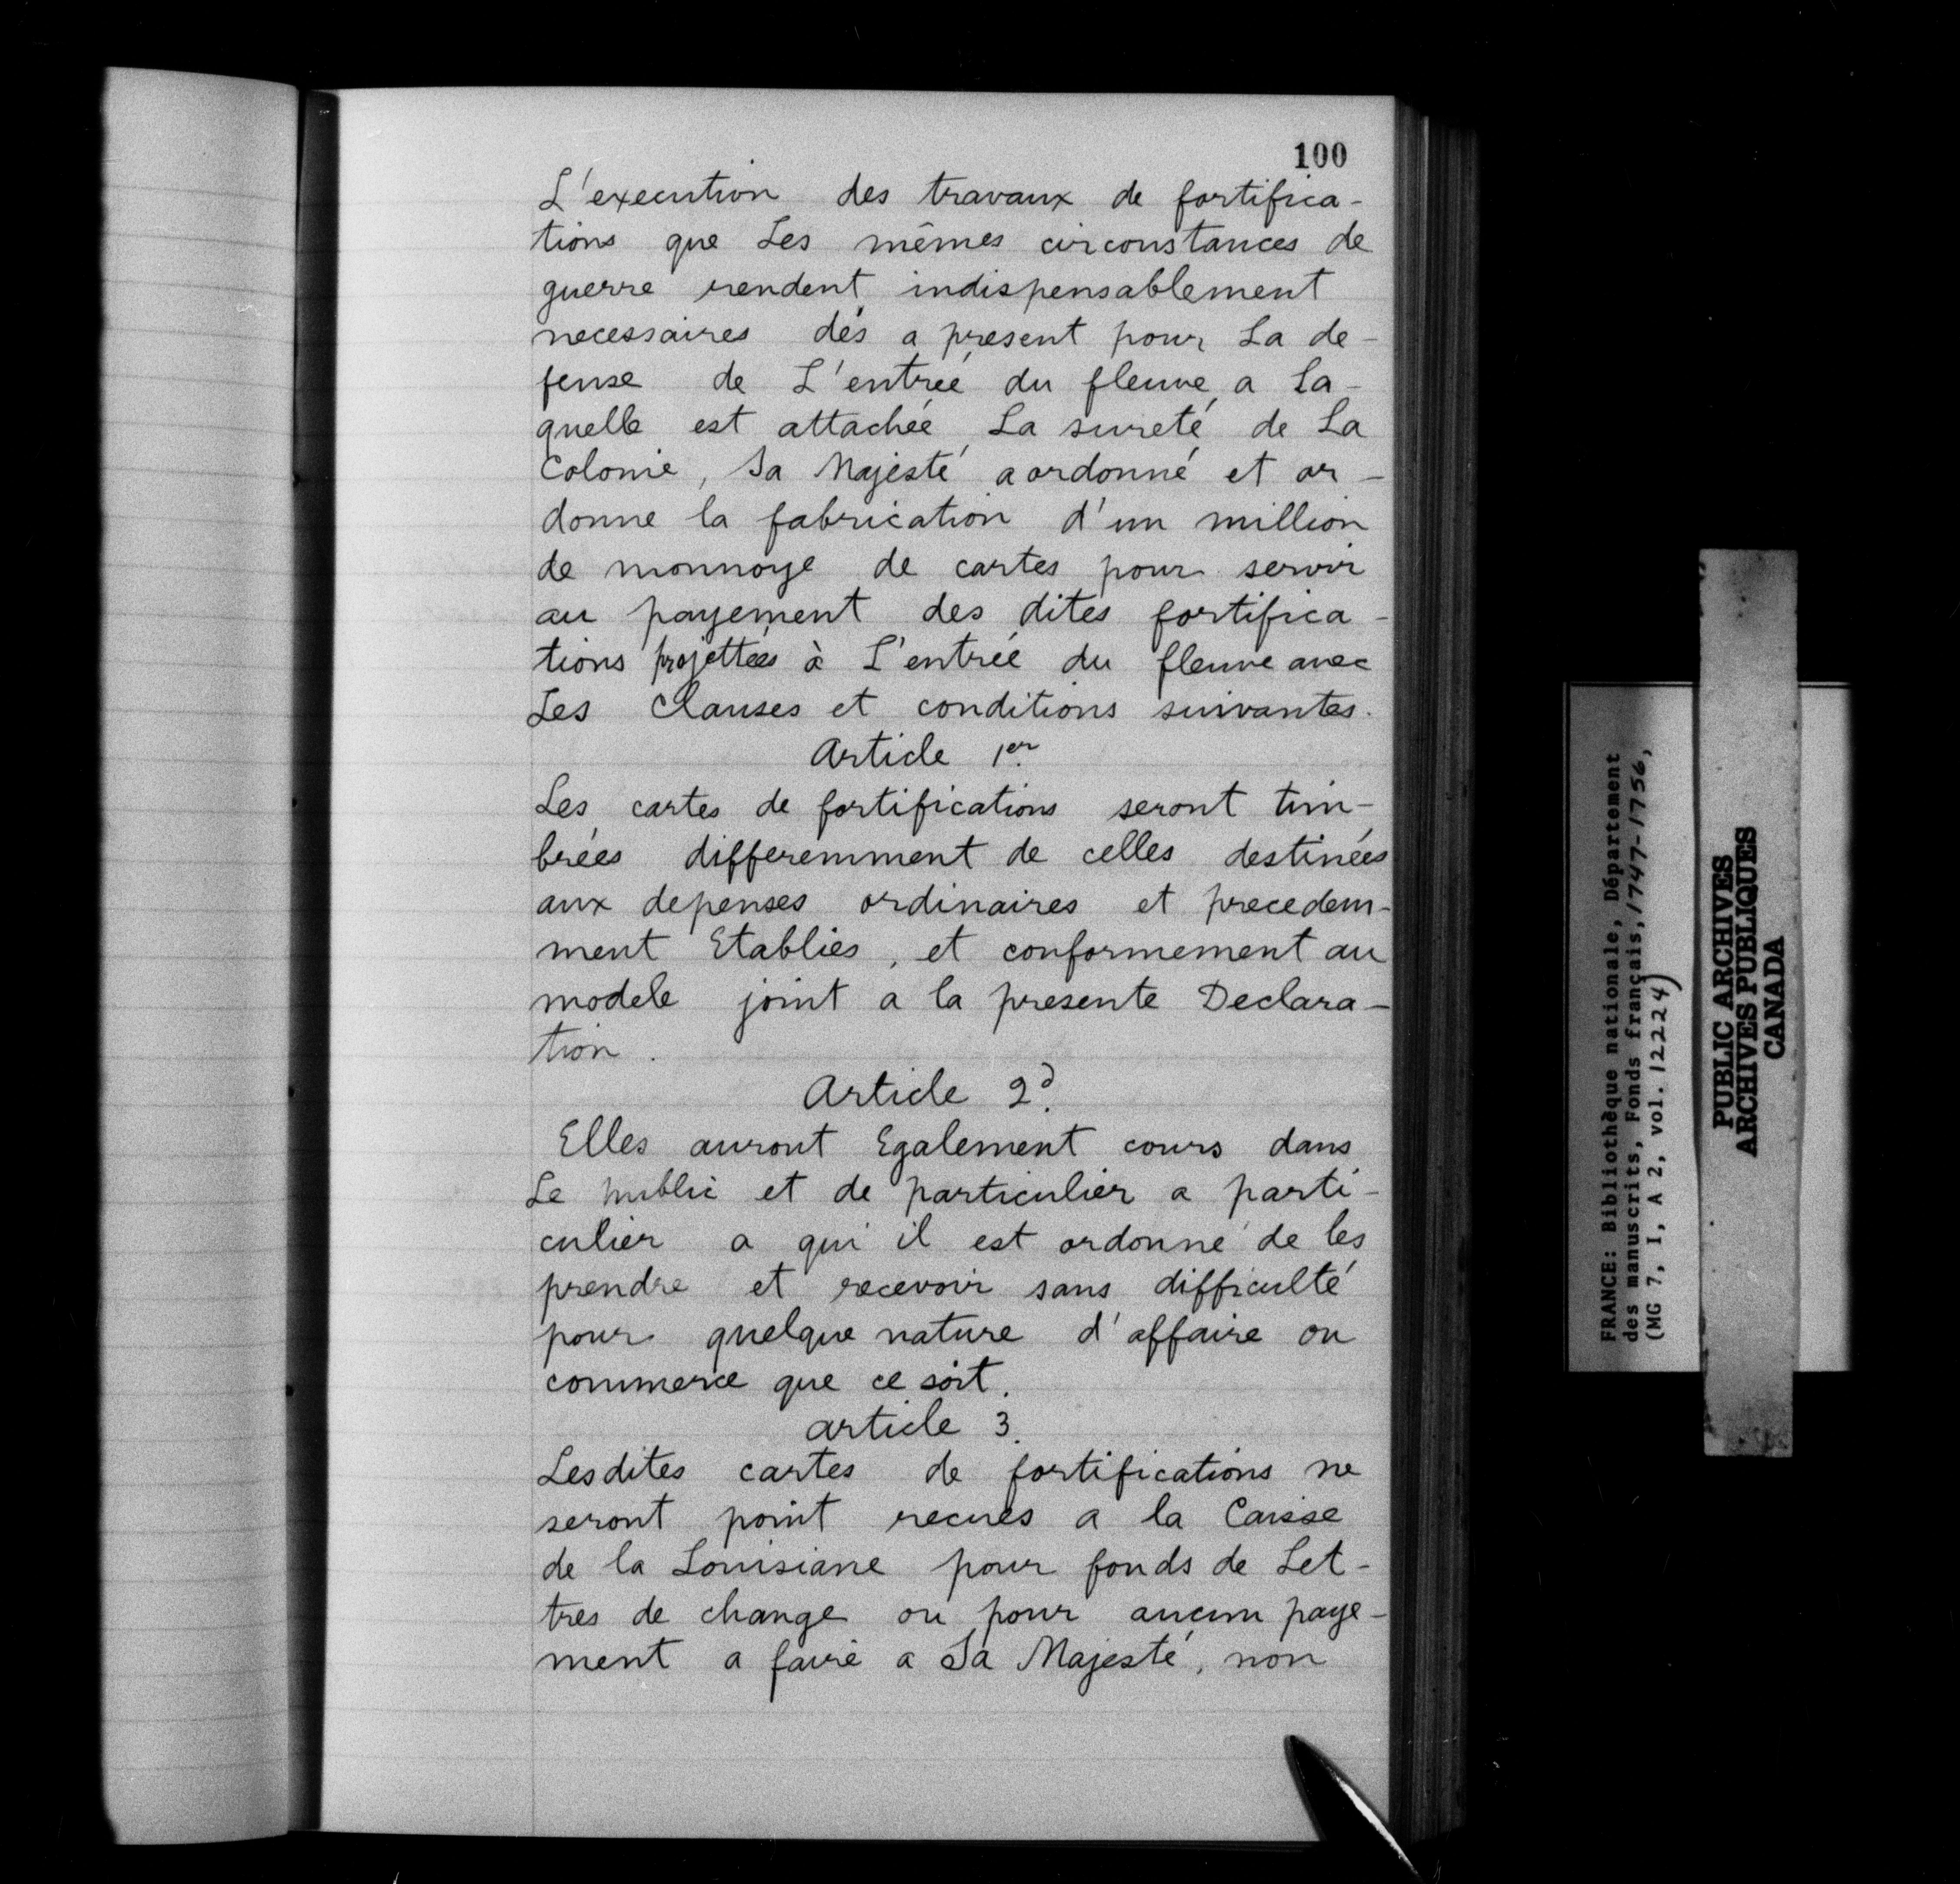 100
L'execution des travaux de fortifica-
tions que Les mêmes circonstances de
guerre rendent indispensablement
necessaires dés a present pour La de-
fense de L'entreé du fleuve a La-
quelle est attachée La sureté de La
Colonie, Sa Majesté a ordonné et or-
donne la fabrication d'un million
de monnoye de cartes pour servir
au payement des dites fortifica-
tions projettées à L'entrée du fleuve avec
Les Clauses et conditions suivantes.
Article 1er.
Les cartes de fortifications seront tim-
brées differemment de celles destinées
aux depenses ordinaires et precedem-
ment Etablies, et conformement au
modele joint a la presente Declara-
tion.
Article 2d.
Elles auront Egalement cours dans
Le public et de particulier a parti-
culier a qui il est ordonné de les
prendre et recevoir sans difficulté
pour quelque nature d'affaire ou
commerce que ce soit.
article 3.
Lesdites cartes de fortifications ne
seront point recues a la Caisse
de la Louisiane pour fonds de Let-
tres de change ou pour aucun paye-
ment a faire a Sa Majesté, non
FRANCE: Bibliothèque nationale, Département
des manuscrits, Fonds français, 1747-1756,
(MG 7, I, A 2, vol. 12224)
PUBLIC ARCHIVES
ARCHIVES PUBLIQUES
CANADA